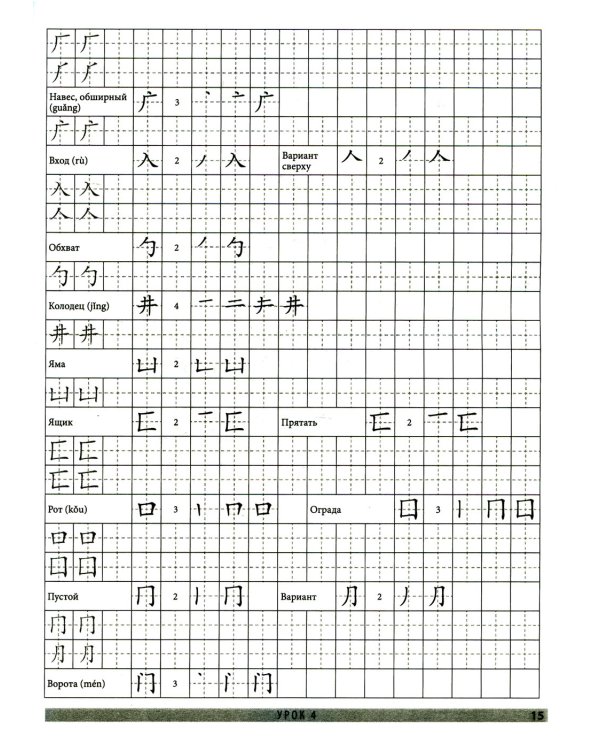 厂 厂
⺁ ⺁
Навес, обширный (guǎng) 广 3 丶 亠 广
广 广
Вход (rù) 入 2 丿 入 Вариант сверху 𠆢 2 丿 𠆢
入 入
𠆢 𠆢
Обхват 勹 2 丿 勹
勹 勹
Колодец (jǐng) 井 4 一 二 キ 井
井 井
Яма 凵 2 ㄴ 凵
凵 凵
Ящик 匚 2 一 匚 Прятать 匸 2 一 匸
匚 匚
匸 匸
Рот (kǒu) 口 3 丨 冂 口 Ограда 囗 3 丨 冂 囗
口 口
囗 囗
Пустой 冂 2 丨 冂 Вариант ⺆ 2 丿 ⺆
冂 冂
⺆ ⺆
Ворота (mén) 门 3 丶 门
УРОК 4 15